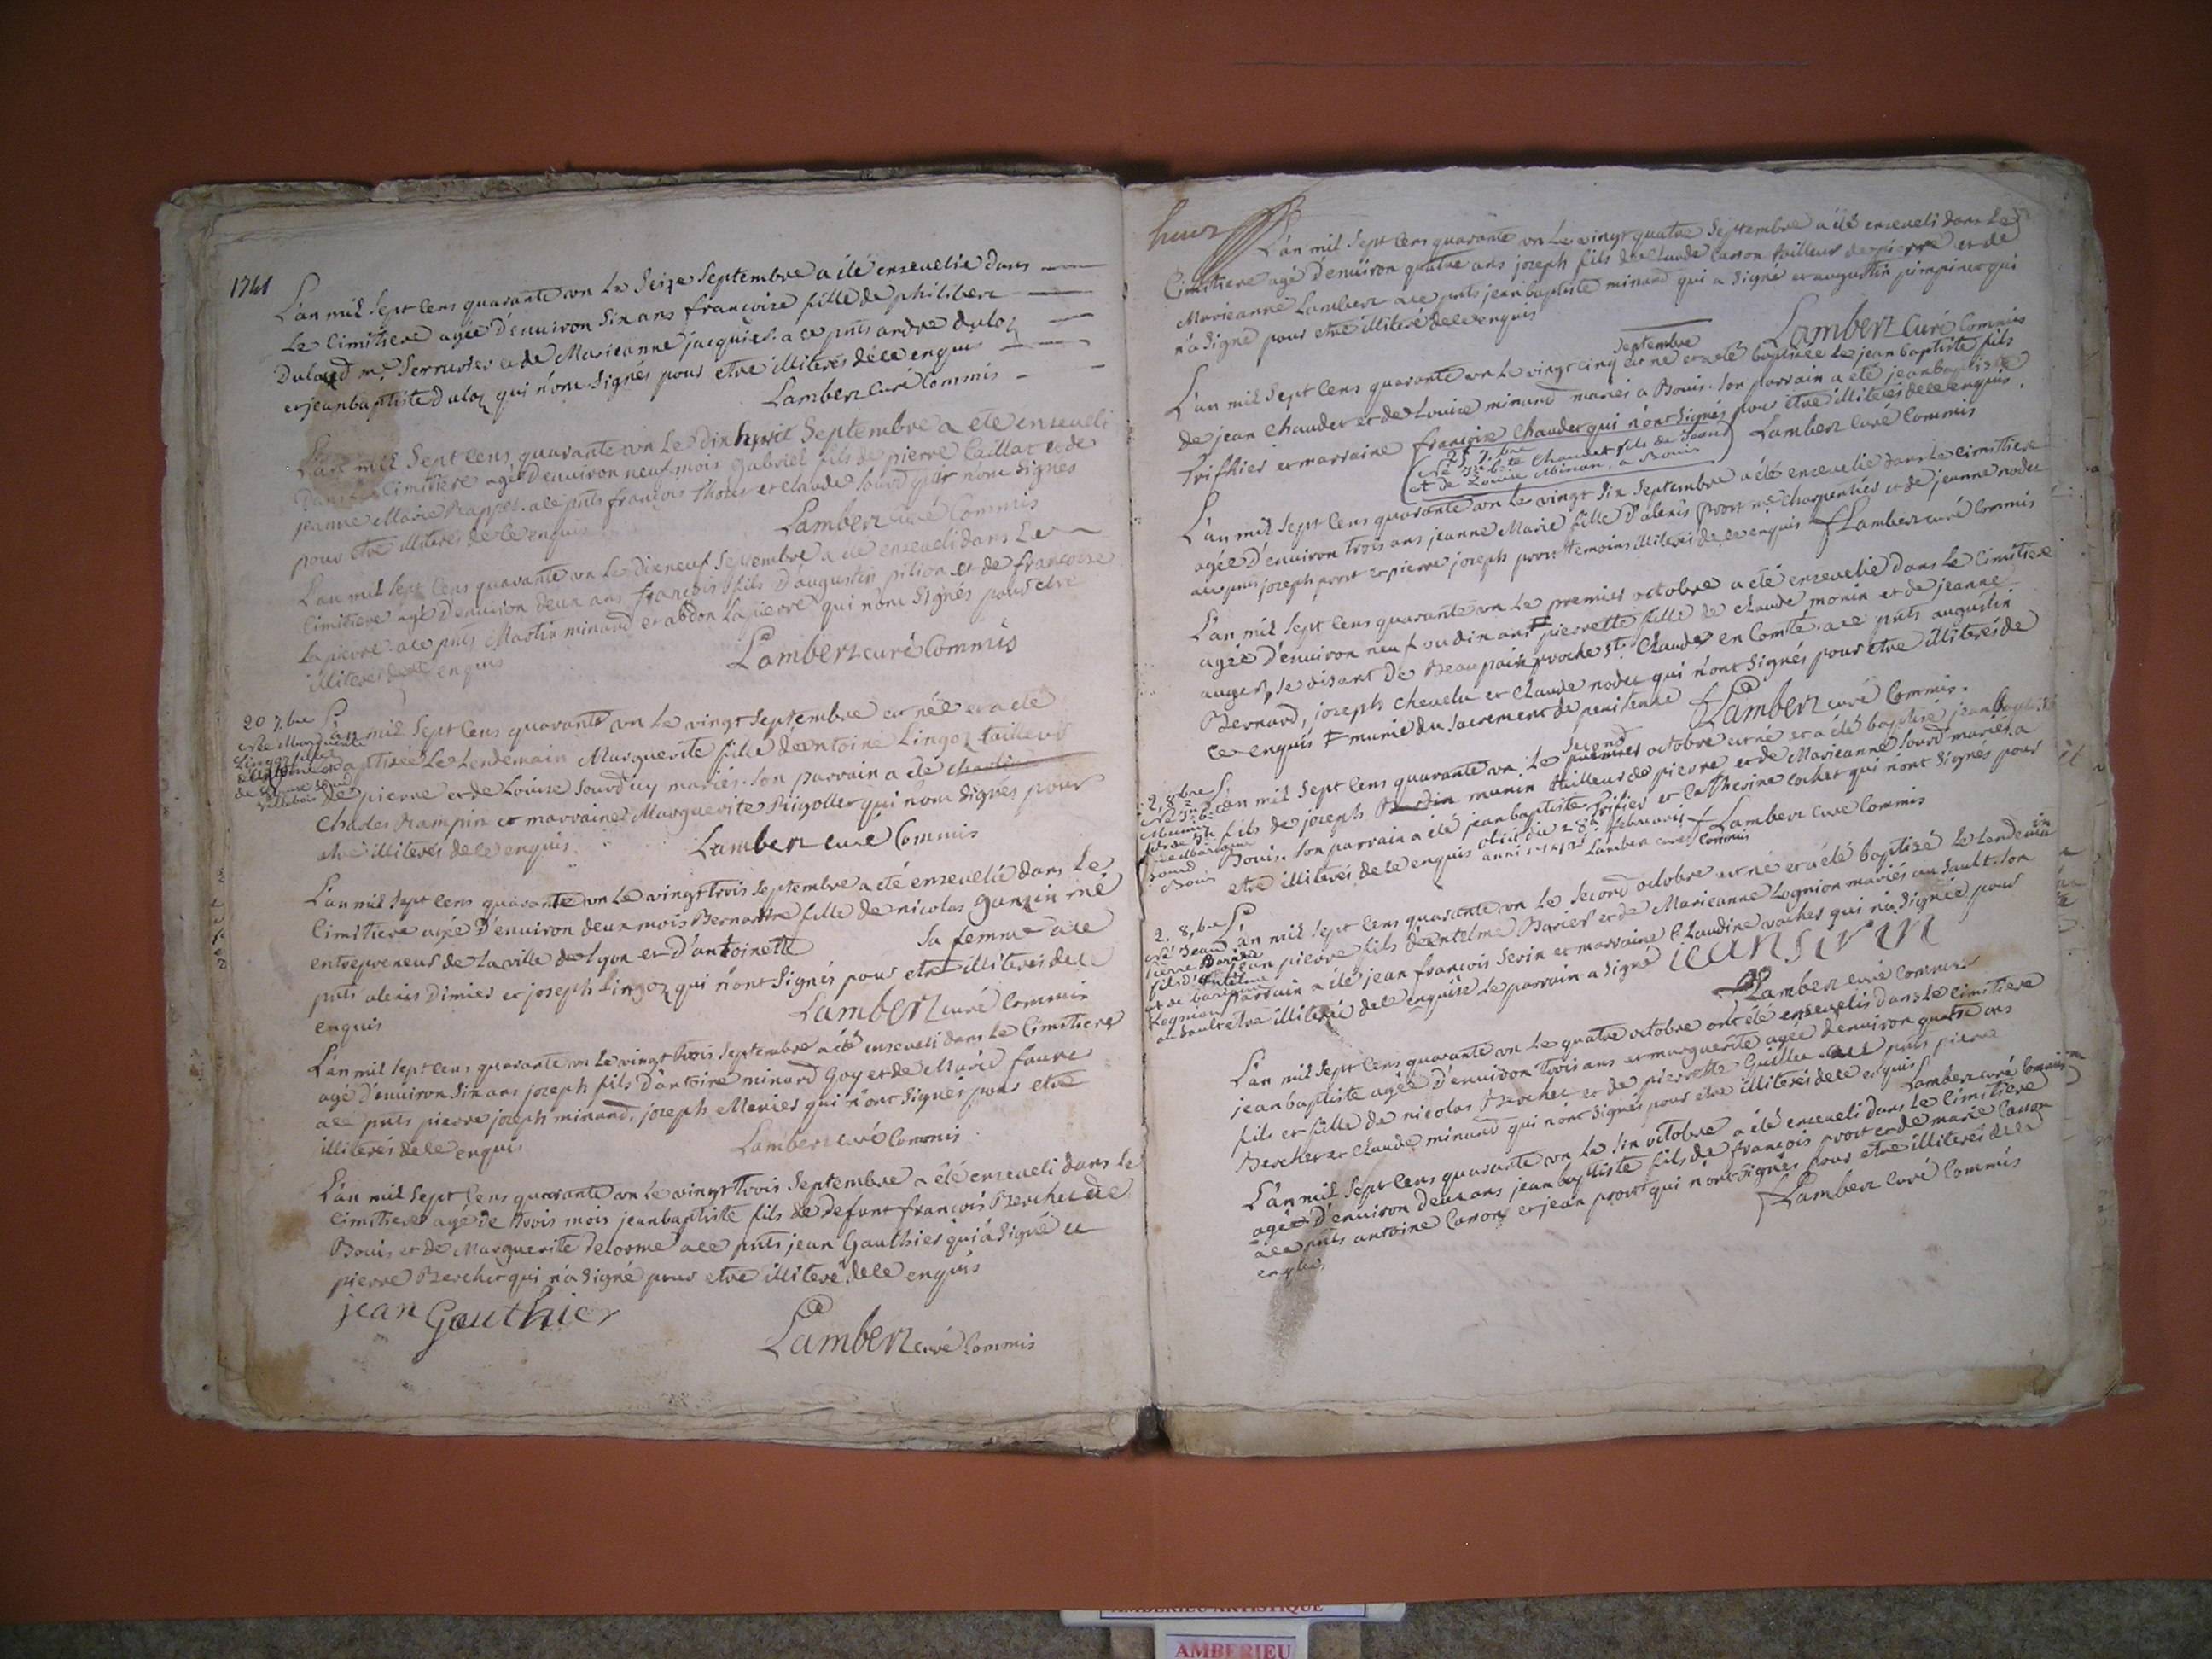 1741
L'an mil sept cens quarante un Le Seize septembre a été enseuelie dans
Le Cimitiere agée d'enuiron six ans françoise fille de philibert
Dulaud me. Serrurier et de Marieanne jacquier. a ce pnts andre duloz
et jeanbaptiste duloz qui n'ont signés pour etre illiterés de ce enquis
Lambert curé Commis
L'an mil Sept Cens quarante un Le dix huit Septembre a eté enseueli
dans Le Cimitiere agé d'enuiron neuf mois Gabriel fils de pierre Caillat et de
jeanne Marie a ce pnts françois et claude sourd qui n'ont signés
pour etre illiterés de ce enquis
Lambert curé Commis
L'an mil sept Cens quarante un Le dixneuf Septembre a été enseueli dans Le
Cimitiere agé d'enuiron deux ans françois fils d'augustin pition et de françoise
Lapierre. a ce pnts Martin minand et abdon Lapierre qui n'ont signés pour etre
illiterés de ce enquis
Lambert curé Commis
20 7.bre
Née Marguerite
Lingoz fille
d'Antoine et
de Louise Sourd
Villebois
L'an mil Sept Cens quarante un Le vingt Septembre est née et a été
baptisée Le Lendemain Marguerite fille d'antoine Lingoz tailleur
de pierre et de Louise Sourd uy mariés. son parrain a été
Charles Rampin et marraine Marguerite Rigollet qui n'ont signés pour
etre illiterés de ce enquis.
Lambert curé Commis
L'an mil sept Cens quarante un Le vingt trois Septembre a été enseuelie dans Le
Cimitiere agée d'enuiron deux mois Bernarde fille de nicolas me
entrepreneur de La ville de Lyon et d'antoinette sa femme a ce
pnts alexis Dimier et joseph Lingoz qui n'ont signés pour etre illiterés de ce
enquis
Lambert curé Commis
L'an mil sept Cens quarante un Le vingt trois Septembre a été enseueli dans Le Cimitiere
agé d'enuiron six ans joseph fils d'antoine minand Goy et de Marie faure
a ce pnts pierre joseph minand, joseph Merier qui n'ont signés pour etre
illiterés de ce enquis
Lambert curé Commis
L'an mil sept Cens quarante un Le vingt trois Septembre a été enseueli dans Le
Cimitiere agé de trois mois jeanbaptiste fils de defunt françois Berchet de
Bouis et de Marguerite delorme a ce pnts jean Gauthier qui a signé et
pierre Berchet qui n'a signé pour etre illiteré de ce enquis
jean Gauthier
Lambert curé Commis
L'an mil Sept Cens quarante un Le vingt quatre Septembre a été enseueli dans Le
Cimitiere agé d'enuiron quatre ans joseph fils de Claude Carron tailleur de pierre et de
Marieanne Lambert a ce pnts jean baptiste minand qui a signé et augustin pimpinet qui
n'a signé pour etre illiteré de ce enquis
Lambert Curé Commis
L'an mil Sept Cens quarante un Le vingt cinq septembre est né et a été baptisée Le jean baptiste fils
de jean Chaudet et de Louise minand mariés a Bouis. son parrain a été jeanbaptiste
Triffier et marraine françoise Chaudet qui n'ont signés pour etre illiterés de ce enquis.
25 7.bre
Né Jn. b.te Chaudet fils de Jean
et de Louise Minan, a Bouis
Lambert curé Commis
L'an mil Sept Cens quarante un Le vingt six Septembre a été enseuelie dans Le Cimitiere
agée d'enuiron trois ans jeanne Marie fille d'alexis prost me. charpentier et de jeanne nodet
a ce pnts joseph prost et pierre joseph prost temoins illiterés de ce enquis
Lambert curé Commis
L'an mil sept Cens quarante un Le premier octobre a été enseuelie dans Le Cimitiere
agée d'enuiron neuf ou dix ans pierrette fille de claude monin et de jeanne
auger, se disant de Beaupain proche St. Claude en Comté. a ce pnts augustin
Bernard, joseph cheuelu et claude nodet qui n'ont signés pour etre illiterés de
ce enquis ‡ munie du sacrement de penitence
Lambert curé Commis.
2, 8bre
Né Jn. b.te
Munin
fils de Jh
et de Marieanne
Sourd
Bouis
L'an mil Sept Cens quarante un Le second octobre est né et a été baptisé jeanbaptiste
fils de joseph munin tailleur de pierre et de Marieanne Sourd mariés a
Bouis. son parrain a été jeanbaptiste Trifier et Catherine cochet qui n'ont signés pour
etre illiterés de ce enquis obiit die 28a februarii
anni 1742 Lambert curé Commis
Lambert curé Commis
2. 8.bre
Né Jean
Pierre Barier
fils d'Antelme
et de Marieanne
Lognion
au Sault
L'an mil sept Cens quarante un Le second octobre est né et a été baptisé Le Lendemain
jean pierre fils d'antelme Barier et de Marieanne Lognion mariés au Sault. son
parrain a été jean françois Sevin et marraine Claudine vacher qui n'a signée pour
etre illiterée de ce enquise Le parrain a signé
Lambert curé Commis
L'an mil sept Cens quarante un Le quatre octobre ont été enseuelis dans Le Cimitiere
jeanbaptiste agé d'enuiron trois ans et marguerite agée d'enuiron quatre ans
fils et fille de nicolas Berchet et de pierrette Guillet. a ce pnts pierre
Berchet et Claude minand qui n'ont signés pour etre illiterés de ce enquis
Lambert curé Commis
L'an mil sept Cens quarante un Le six octobre a été enseueli dans Le Cimitiere
agé d'enuiron deux ans jean baptiste fils de françois prost et de marie Carron
a ce pnts antoine Carron et jean prost qui n'ont signés pour etre illiterés de ce
enquis
Lambert Curé Commis
AMBERIEU ARTISTIQUE
AMBERIEU